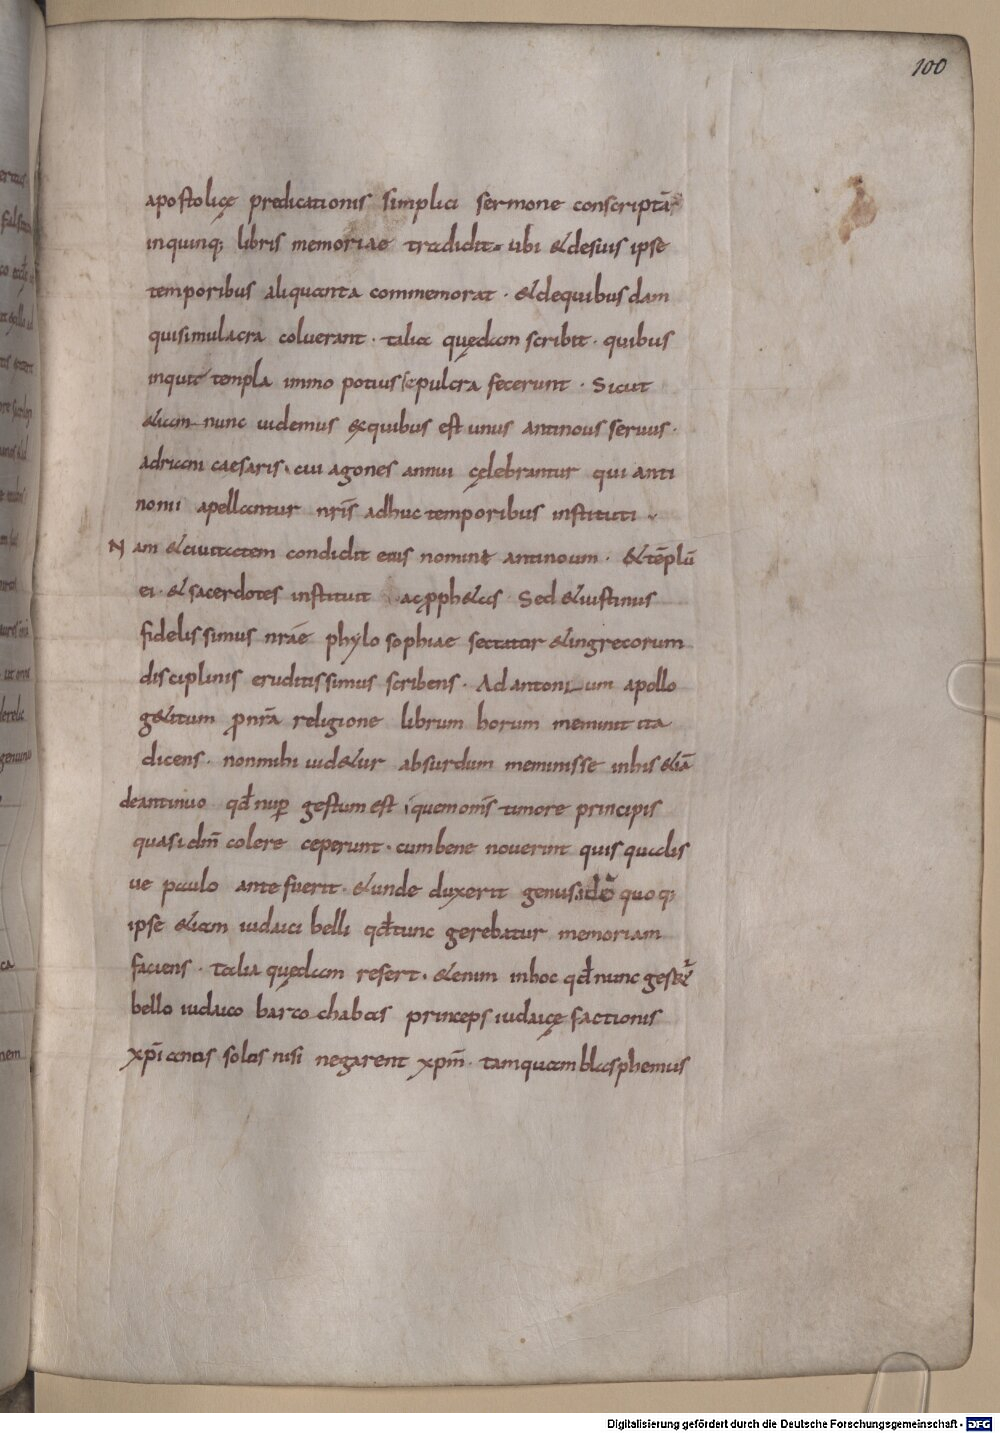 100
apostolicę predicationis simplici sermone conscriptā
inquinq; libris memoriae tradidit. ubi &desuis ipse
temporibus aliquanta commemorat · &dequibusdam
quisimulacra coluerant · talia quędam scribit · quibus
inquit templa immo potius sepulcra fecerunt · Sicut
&iam nunc uidemus exquibus est unus antinous seruus·
adriani caesaris, cui agones annui cęlebrantur qui anti
nomi apellantur nr̄is adhuc temporibus instituti
Nam &ciuitatem condidit eius nomine antinoum · &tēplū
ei · &sacerdotes instituit · acpph&as Sed &iustinus
fidelissimus nrāe phylosophiae sectator &ingrecorum
disciplinis eruditissimus scribens · Ad antonium apollo
g&itum pnr̄a religione librum horum meminit ita
dicens · nonmihi uid&ur absurdum meminisse inhis &iā
deantinuo qd̄ nup̄ gestum est quem om̄s timore principis
quasi dm̄ colere ceperunt · cumbene nouerint quis qualis
ue paulo ante fuerit · &unde duxerit genus quoq;
ipse &iam iudaici belli qd̄tunc gerebatur memoriam
faciens · Talia quędam refert · &enim inhoc qd̄ nunc
bello iudaico barcochabas princeps iudaicę factionis
xp̄ianos solos nisi negarent xpm̄ · tamquam blasphemus
Digitalisierung gefördert durch die Deutsche Forschungsgemeinschaft - DFG